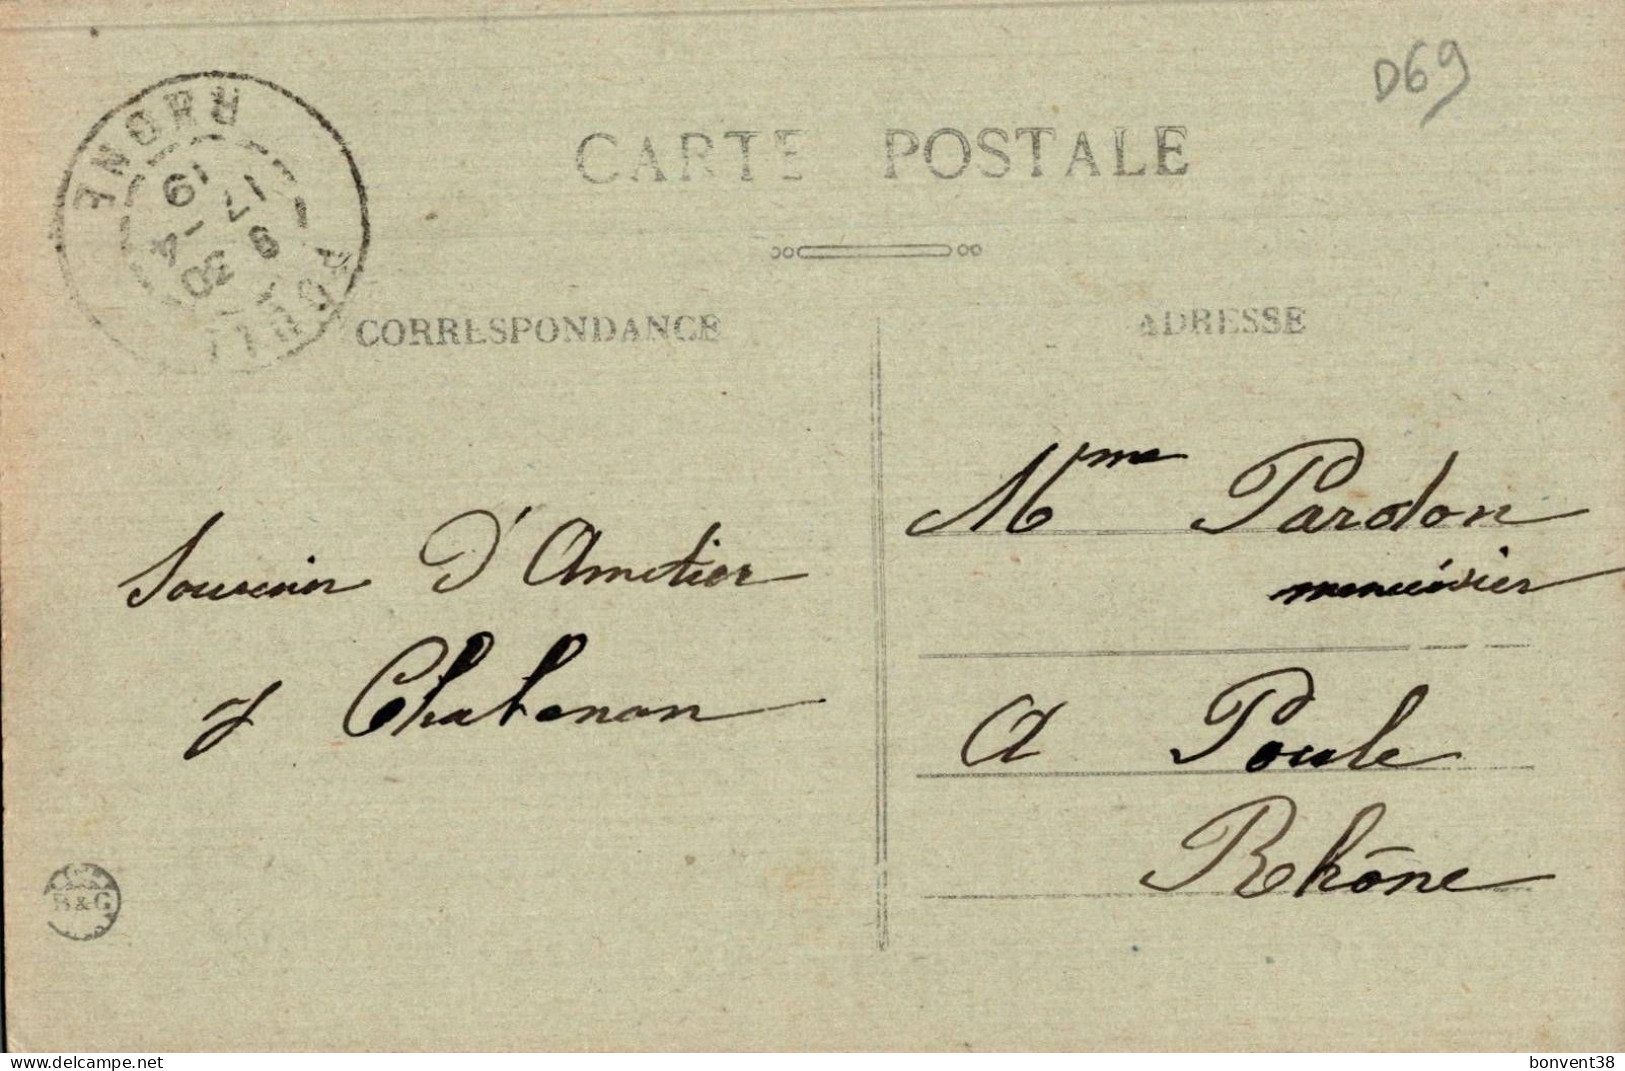 D69
CARTE POSTALE
RHONE
POULE
17-4
19
CORRESPONDANCE
ADRESSE
Souvenir d'Ametier
J Chabenon
Mme Pardon
menuisier
A Poule
Rhône
B&G
delcampe.net
bonvent38